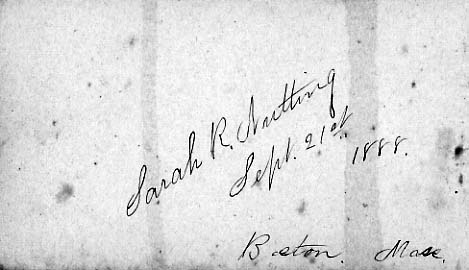 Sarah R. Nutting
Sept. 21st.
1888.
Boston. Mass.